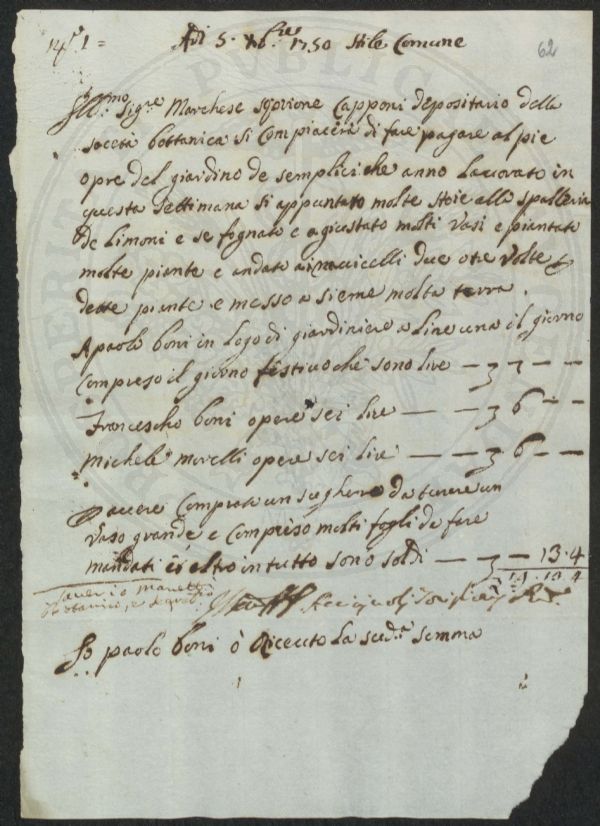 Adi 5. Xbre 1750 Stile Comune
62
Illmo Sigre Marchese Scipione Capponi depositario della
società bottanica si Compiacerà di fare pagare al pie
opre del giardino de semplici che anno Lavorato in
questa Settimana si appuntato molte stoie alle Spalliera
de Limoni e se fognato e agiustato molti Vasi e piantate
molte piante e andato a navicelli due o tre Volte
dette piante e messo a sieme molta terra.
A paolo boni in logo di giardiniere a Lire una il giorno
Compreso il giorno festivo che sono lire — 7 — —
Francescho boni opere sei lire — — 6 — —
Michele morelli opere sei lire — — 6 — —
avere Comprato un sughero da turare un
Vaso grande e Compreso molti fogli da fare
mandati et eltro in tutto sono soldi — — 13.4
19.13.4
Saverio Manetti
Bottanico, e Segret:
Io paolo boni ò Riceuto la sudta somma